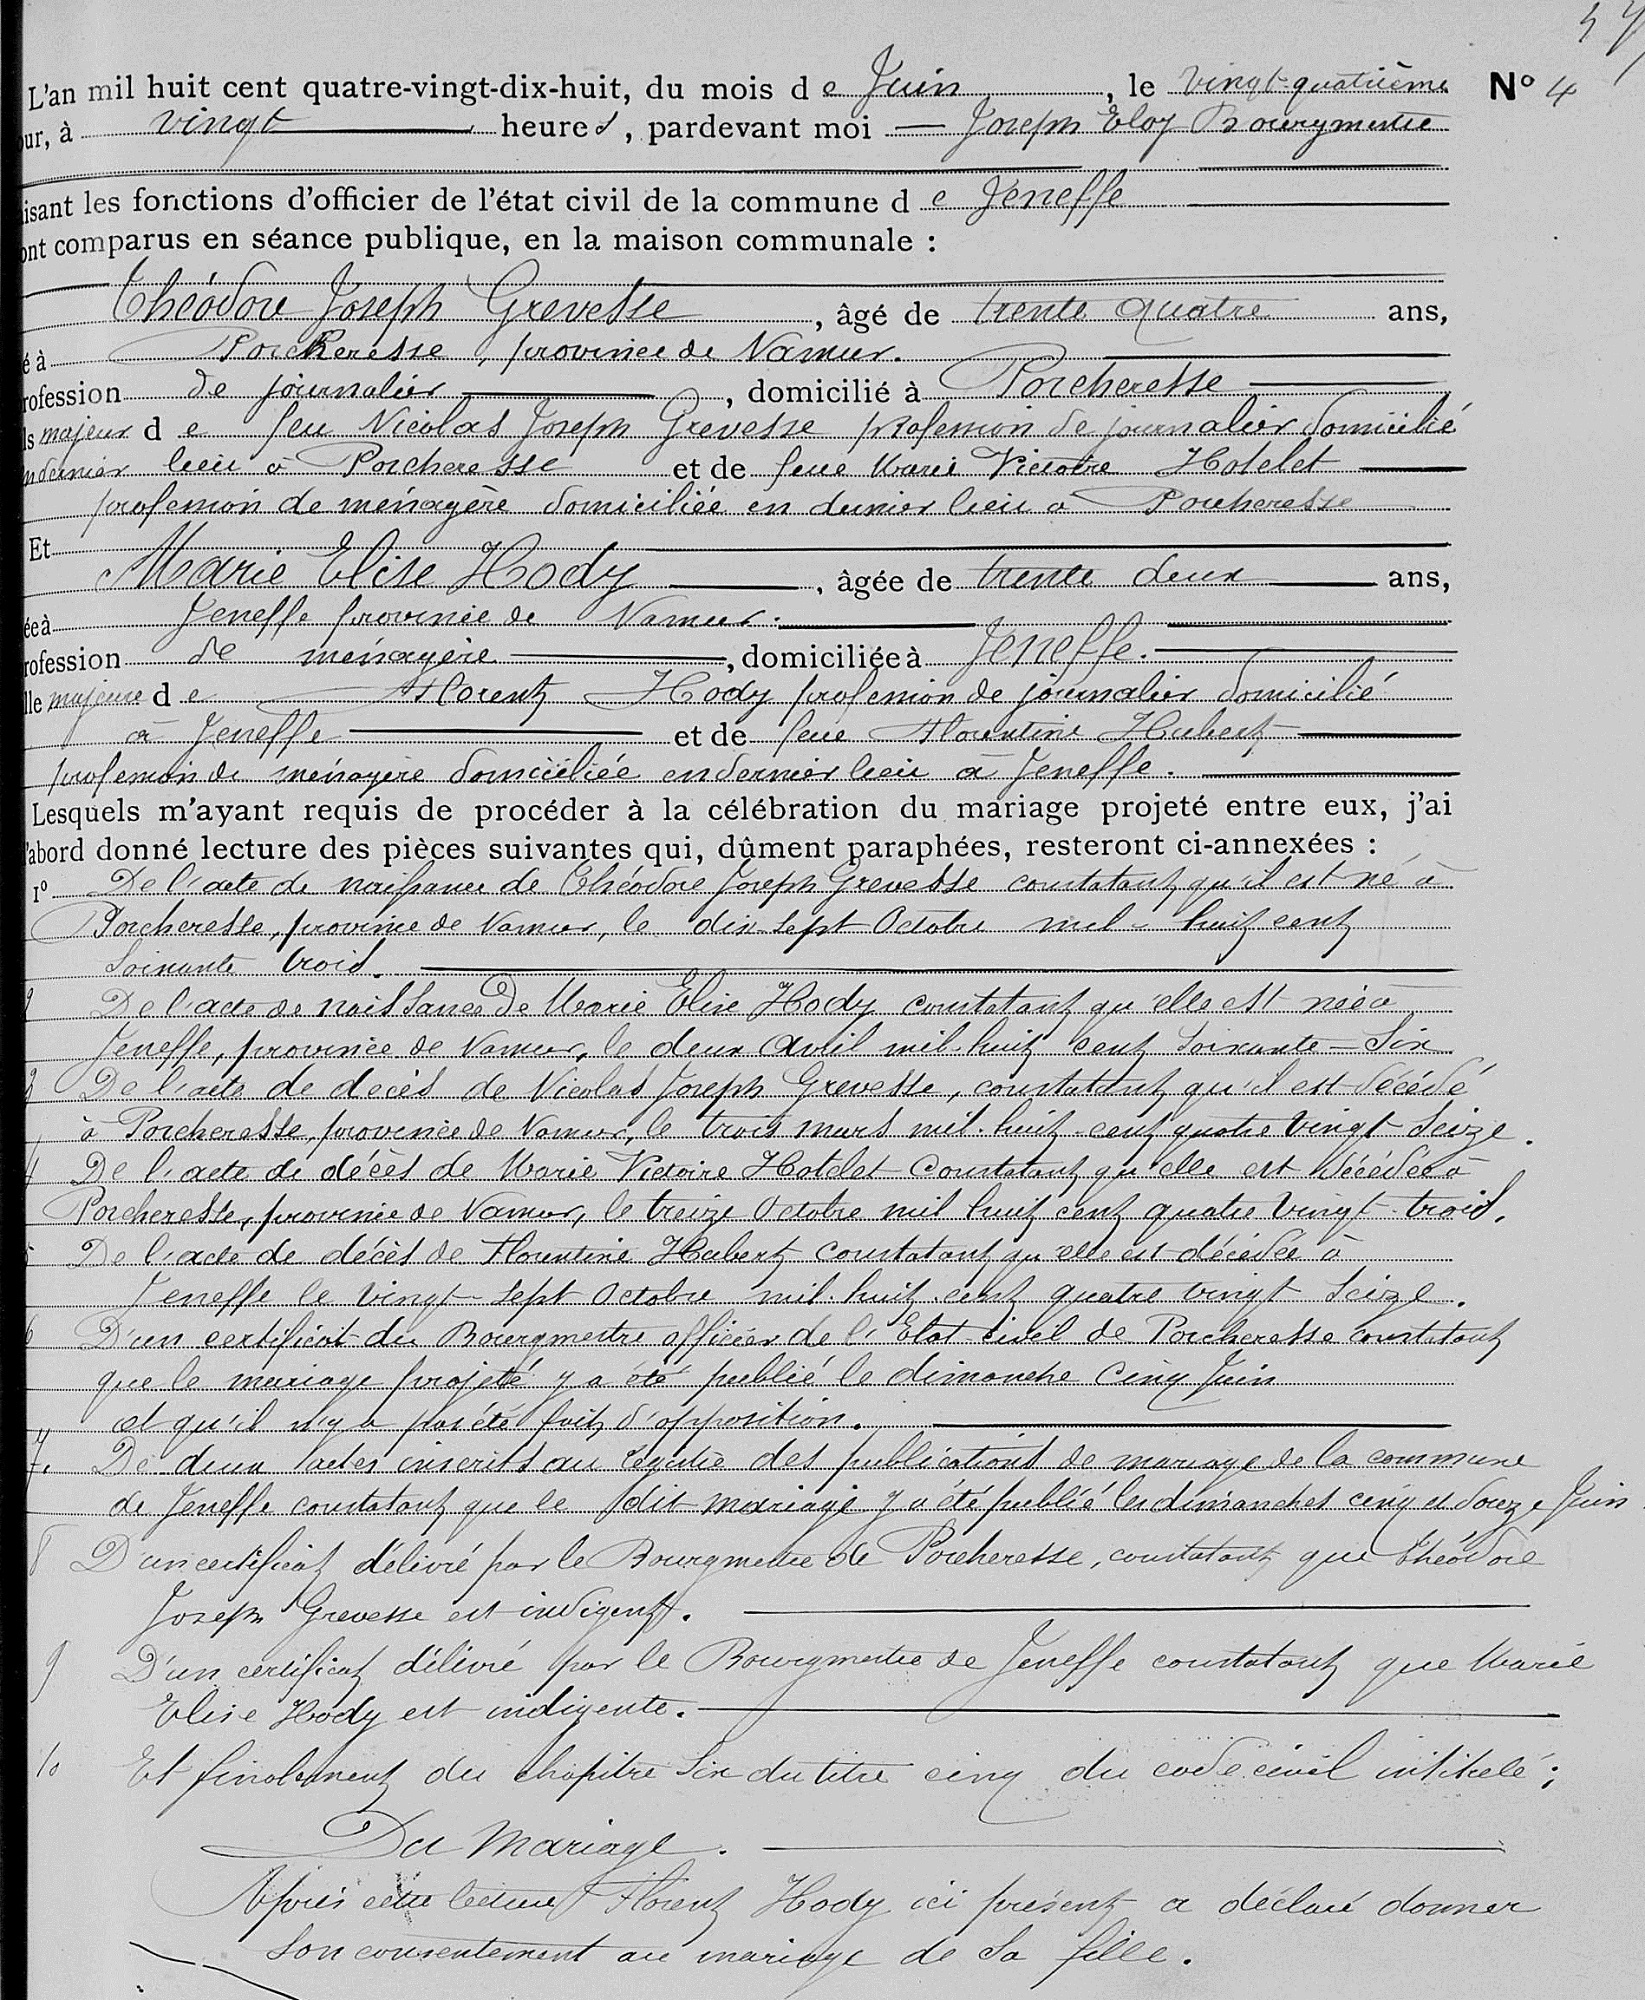 57
L'an mil huit cent quatre-vingt-dix-huit, du mois de Juin, le vingt-quatrième N° 4
our, à vingt heures, pardevant moi — Joseph Eloy Bourgmestre
isant les fonctions d'officier de l'état civil de la commune de Jeneffe
ont comparus en séance publique, en la maison communale :
Théodore Joseph Grevesse, âgé de trente quatre ans,
é à Porcheresse, province de Namur.
rofession de journalier, domicilié à Porcheresse
ls majeur de feu Nicolas Joseph Grevesse profession de journalier domicilié
en dernier lieu à Porcheresse et de feue Marie Victoire Hotelet
profession de ménagère domiciliée en dernier lieu à Porcheresse
Et
Marie Elise Hody, âgée de trente deux ans,
ée à Jeneffe province de Namur.
rofession de ménagère, domiciliée à Jeneffe.
lle majeure de Florent Hody profession de journalier domicilié
à Jeneffe et de feue Florentine Hubert
profession de ménagère domiciliée en dernier lieu à Jeneffe.
Lesquels m'ayant requis de procéder à la célébration du mariage projeté entre eux, j'ai
'abord donné lecture des pièces suivantes qui, dûment paraphées, resteront ci-annexées :
1° De l'acte de naissance de Théodore Joseph Grevesse constatant qu'il est né à
Porcheresse, province de Namur, le dix-sept Octobre mil-huit cent
soixante trois.
2 De l'acte de naissance de Marie Elise Hody constatant qu'elle est née à
Jeneffe, province de Namur, le deux avril mil-huit cent soixante-six
3 De l'acte de décès de Nicolas Joseph Grevesse, constatant qu'il est décédé
à Porcheresse, province de Namur, le trois mars mil-huit-cent quatre vingt seize.
4 De l'acte de décès de Marie Victoire Hotelet constatant qu'elle est décédée à
Porcheresse, province de Namur, le treize Octobre mil huit cent quatre vingt-trois.
5 De l'acte de décès de Florentine Hubert constatant qu'elle est décédée à
Jeneffe le vingt-sept Octobre mil-huit-cent quatre vingt seize.
6 D'un certificat du Bourgmestre officier de l'Etat-civil de Porcheresse constatant
que le mariage projeté y a été publié le dimanche cinq Juin
et qu'il n'y a pas été fait d'opposition.
7. De deux actes inscrits au registre des publications de mariage de la commune
de Jeneffe constatant que le dit mariage y a été publié les dimanches cinq et douze Juin
8 D'un certificat délivré par le Bourgmestre de Porcheresse, constatant que Théodore
Joseph Grevesse est indigent.
9 D'un certificat délivré par le Bourgmestre de Jeneffe constatant que Marie
Elise Hody est indigente.
10 Et finalement du chapitre six du titre cinq du code civil intitulé;
Du Mariage.
Après cette lecture Florent Hody ici présent a déclaré donner
son consentement au mariage de sa fille.